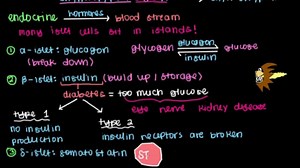 endocrine hormones blood stream
many islet cells sit in islands!
① α-islet: glucagon glycogen glucagon glucose
(break down) insulin
② β-islet: insulin (build up / storage)
diabetes = too much glucose
eye nerve kidney disease
type 1 type 2
no insulin insulin receptors are broken
production
③ δ-islet: somatostatin ST